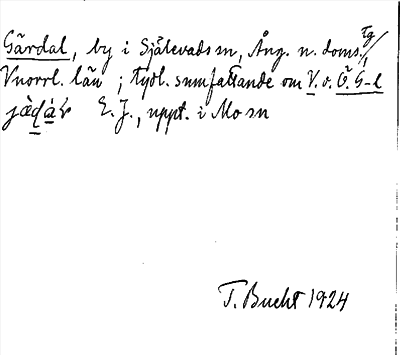 Gärdal, by i Själevads sn, Ång. n. doms.,
Vnorrl. län; tydl. sumfattande om V. o. Ö. G-l
E. J., uppt. i Mo sn
T. Bucht 1924